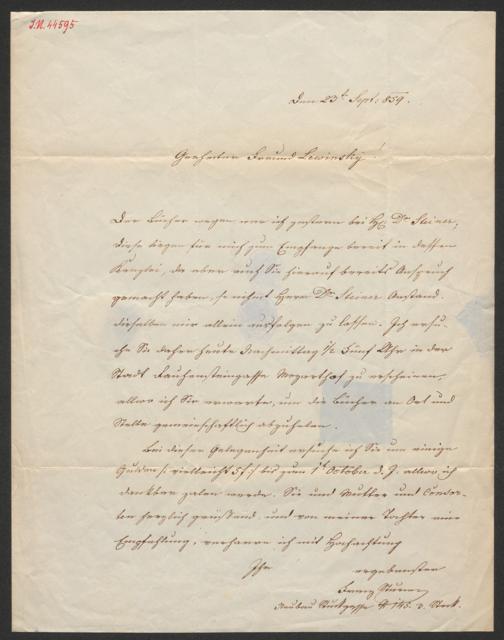 J.N. 44595
Den 23t Sept. 859.
Geehrter Freund Lewinsky!
Der Bücher wegen war ich gestern bei H. Dr Steiner;
diese liegen für mich zum Empfange bereit in dessen
Kanzlei, da aber auch Sie hierauf bereits Anspruch
gemacht haben, so nimmt Herr Dr Steiner Anstand
dieselben mir allein ausfolgen zu lassen. Ich ersu-
che Sie daher heute Nachmittag ½ Fünf Uhr in der
Stadt Rauhensteingasse Mozarthof zu erscheinen,
allwo ich Sie erwarte, um die Bücher an Ort und
Stelle gemeinschaftlich abzuholen.
Bei dieser Gelegenheit ersuche ich Sie um einige
Gulden /: vielleicht 5f :/ bis zum 1t October d. J. allwo ich
dankbar zalen werde. Sie und Mutter und
herzlich grüßend und von meiner Tochter eine
Empfehlung, verharre ich mit Hochachtung
Ihr ergebenster
Franz
Neubau Stuckgasse № 145. 2. Stock.